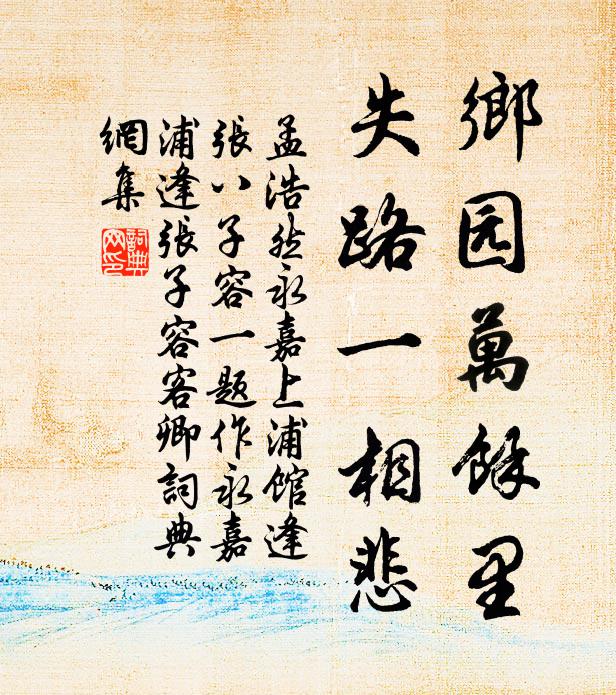 鄉园萬餘里
失路一相悲
孟浩然永嘉上浦馆逢
張八子容一题作永嘉
浦逢張子容客卿詞典
網集
詞典
网印